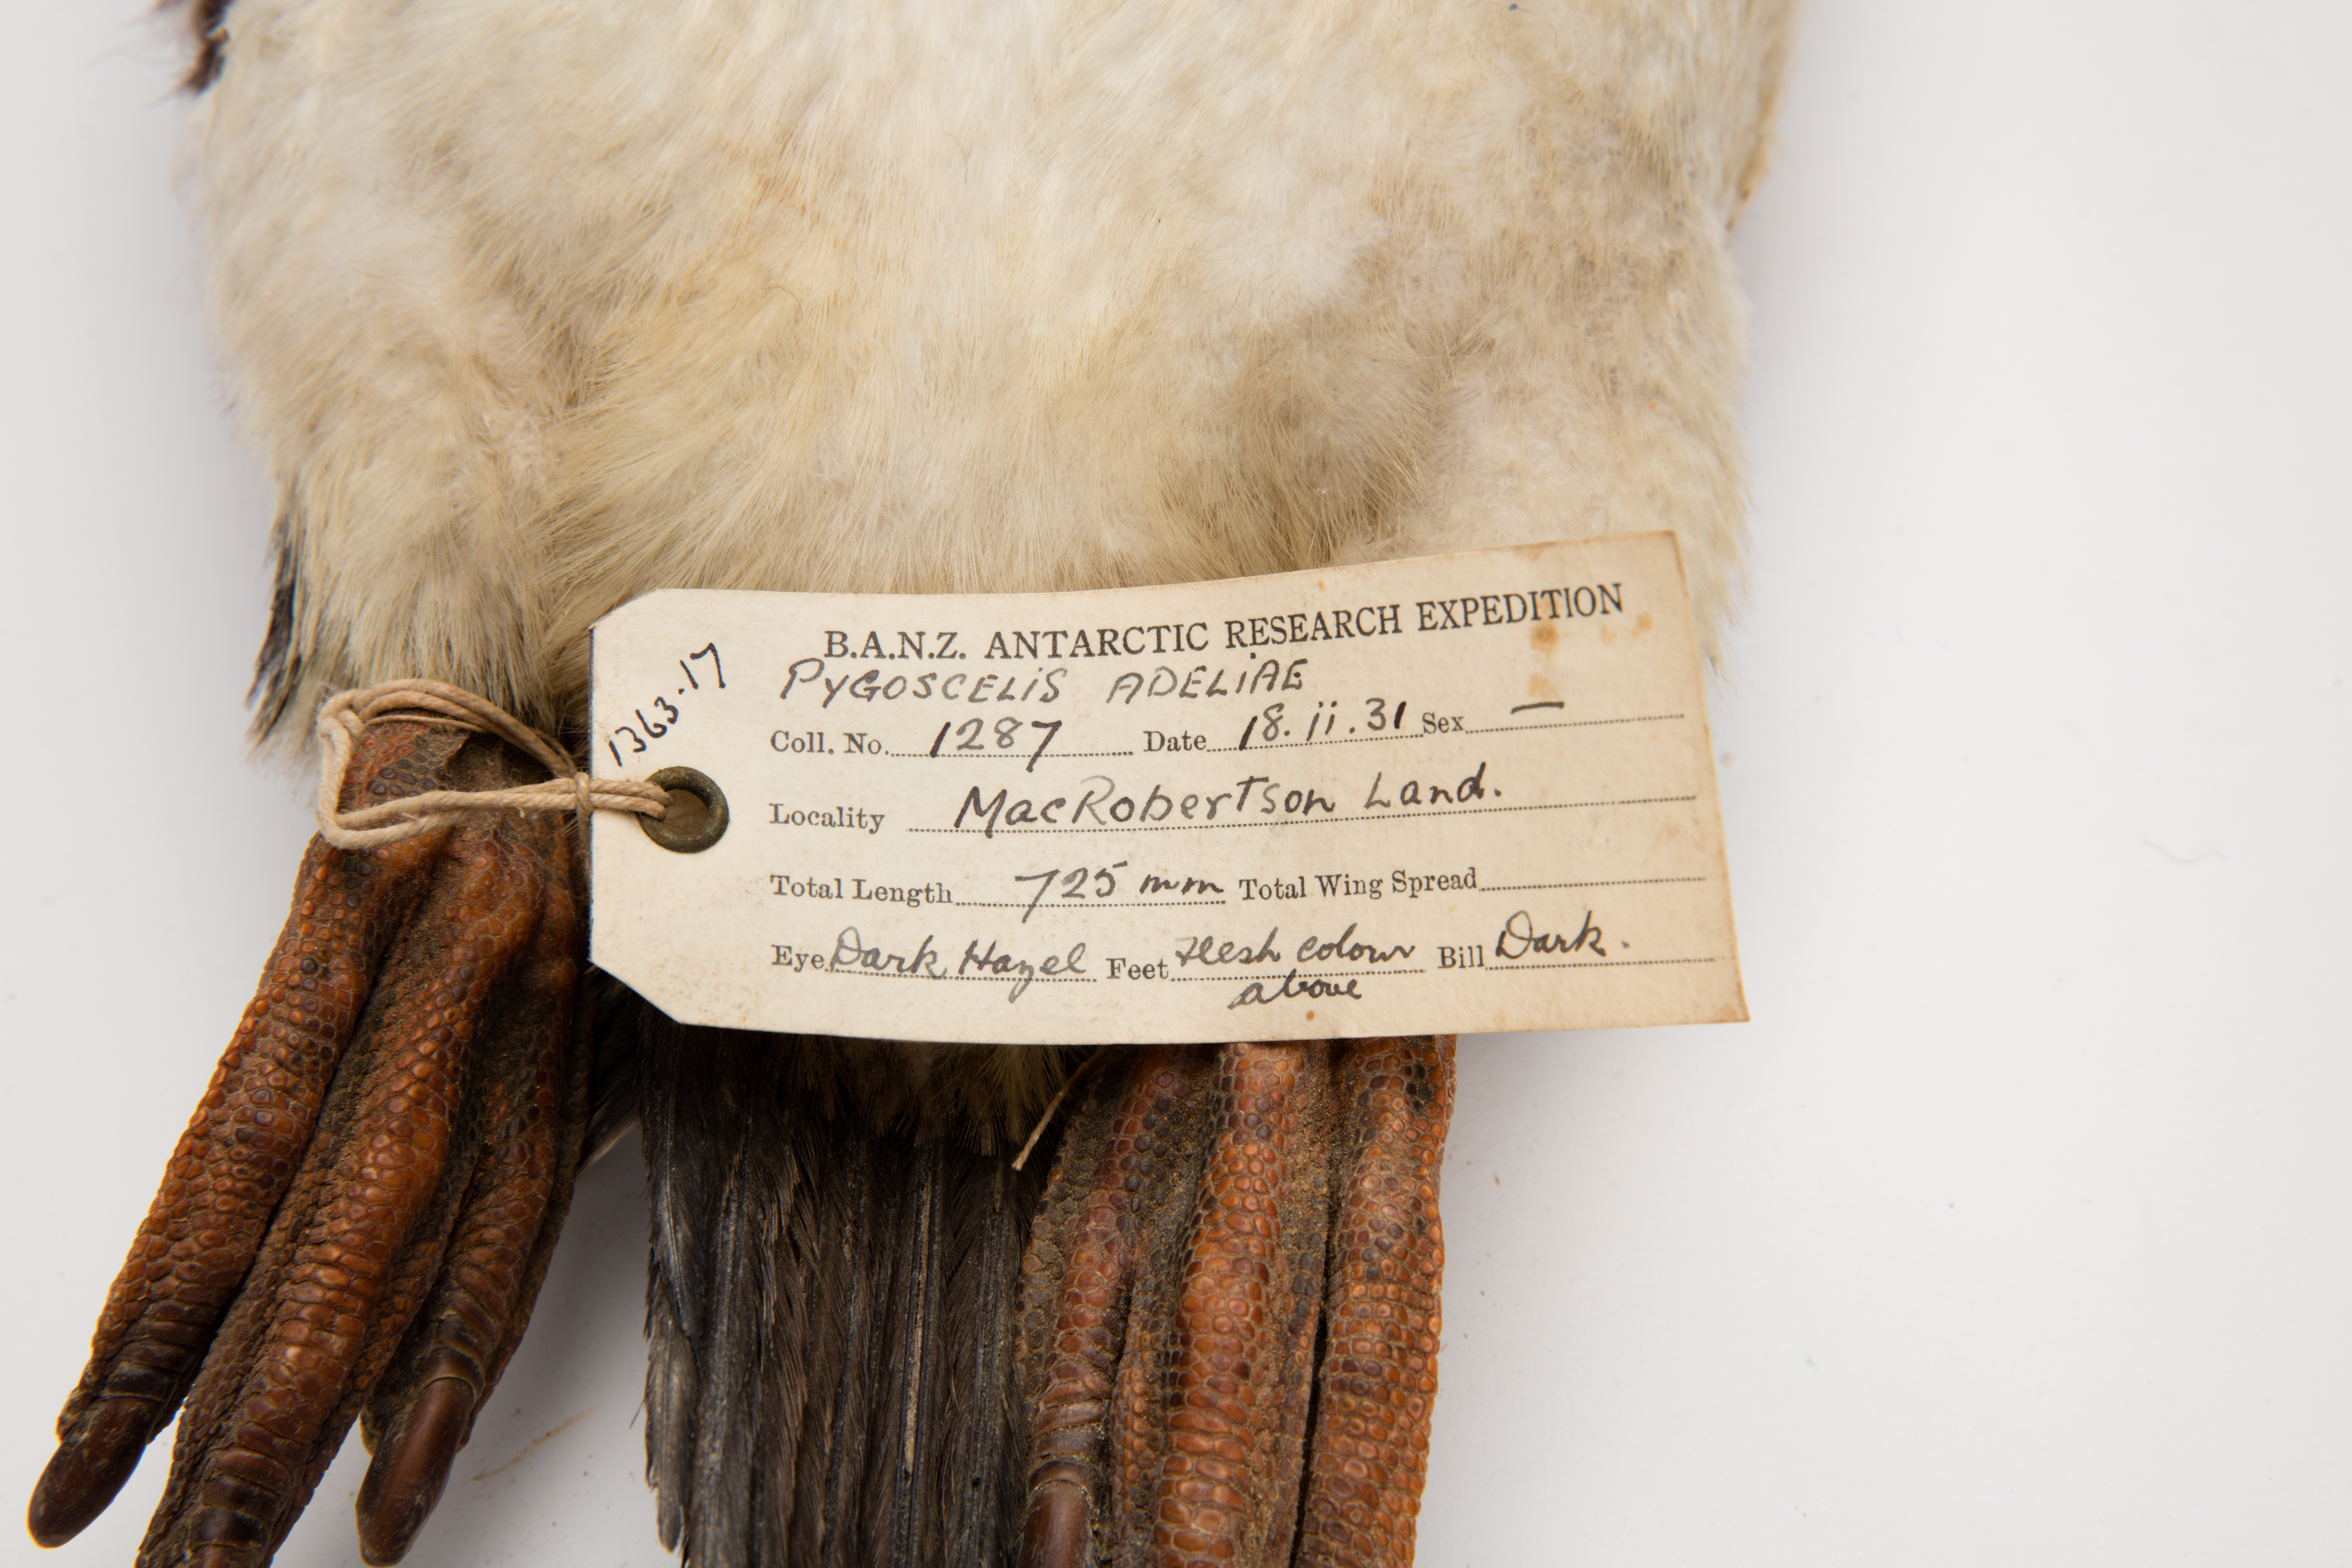 1363.17
B.A.N.Z. ANTARCTIC RESEARCH EXPEDITION
PYGOSCELiS ADELiAE
Coll. No. 1287 Date 18.ii.31 Sex —
Locality MacRobertson Land.
Total Length 725 mm Total Wing Spread
Eye Dark Hazel Feet Flesh colour Bill Dark.
above